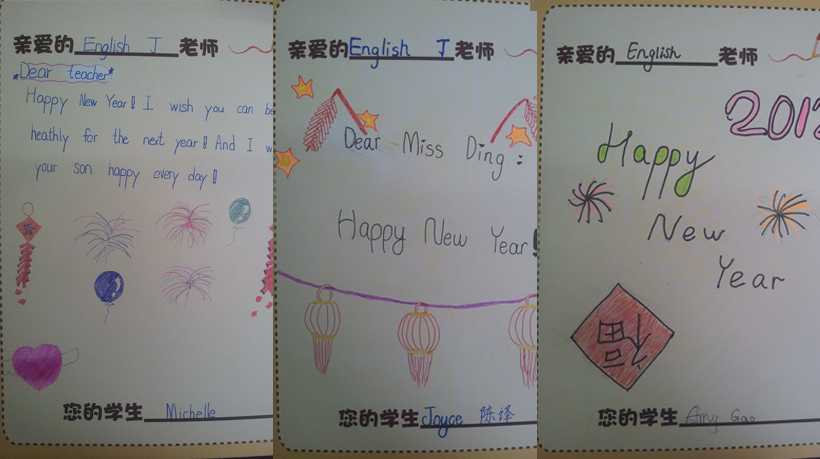 亲爱的 English J 老师
*Dear teacher*
Happy New Year! I wish you can be
heathly for the next year! And I w
your son happy every day!
您的学生 Michelle
亲爱的 English J 老师
Dear Miss Ding:
Happy New Year!
您的学生 Joyce 陈译
亲爱的 English 老师
2012
Happy
New
Year
福
您的学生 Amy Gao